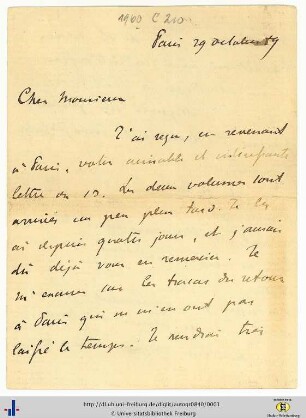 1960 C 210.
Paris 29 octobre 89
Cher Monsieur
J'ai reçu, en revenant
à Paris, votre aimable et intéressante
lettre du 13. Les deux volumes sont
arrivés un peu plus tard. Je les
ai depuis quatre jours, et j'aurais
dû déjà vous en remercier. Je
m'excuse sur les tracas du retour
à Paris qui ne m'en ont pas
laissé le temps. Je voudrais très
http://dl.ub.uni-freiburg.de/diglit/autogr0840/0001
© Universitätsbibliothek Freiburg